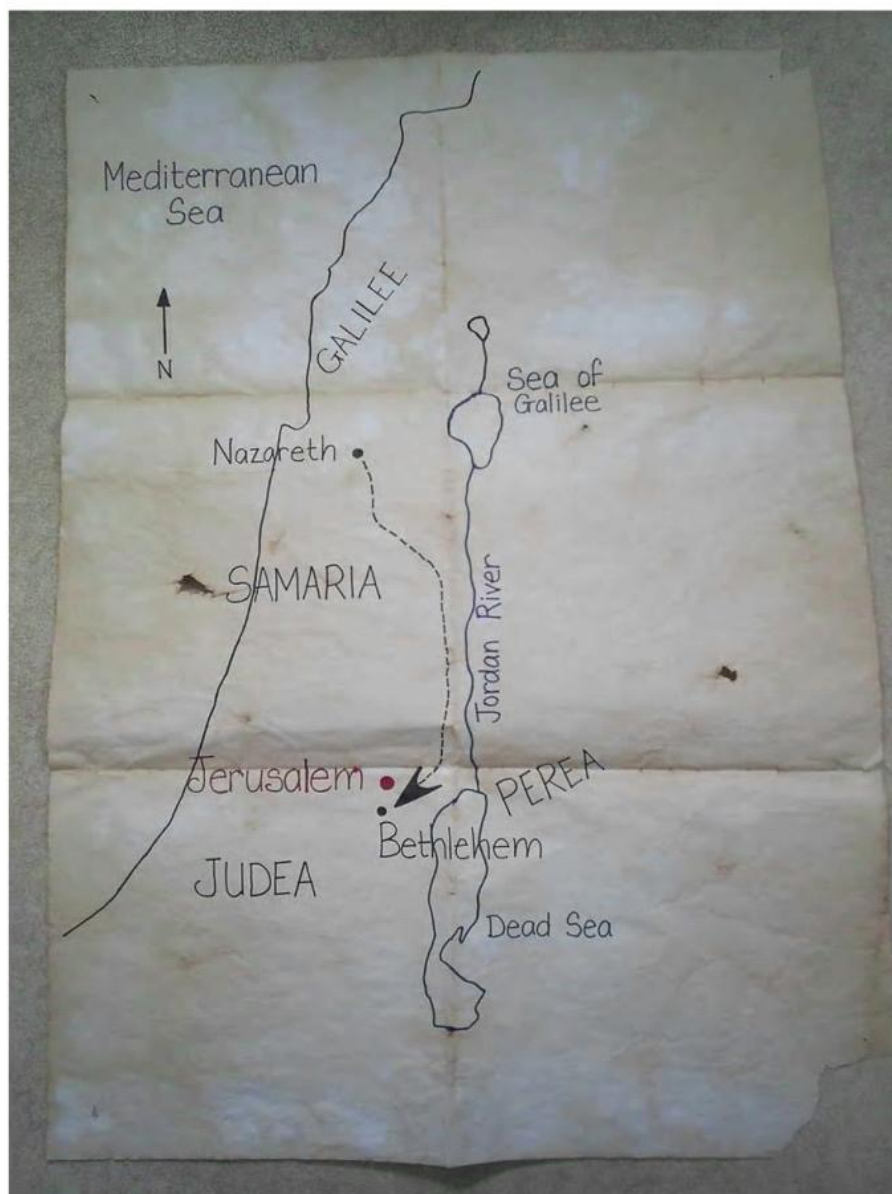 Mediterranean
Sea
N
GALILEE
Sea of
Galilee
Nazareth
SAMARIA
Jordan River
Jerusalem
PEREA
Bethlehem
JUDEA
Dead Sea